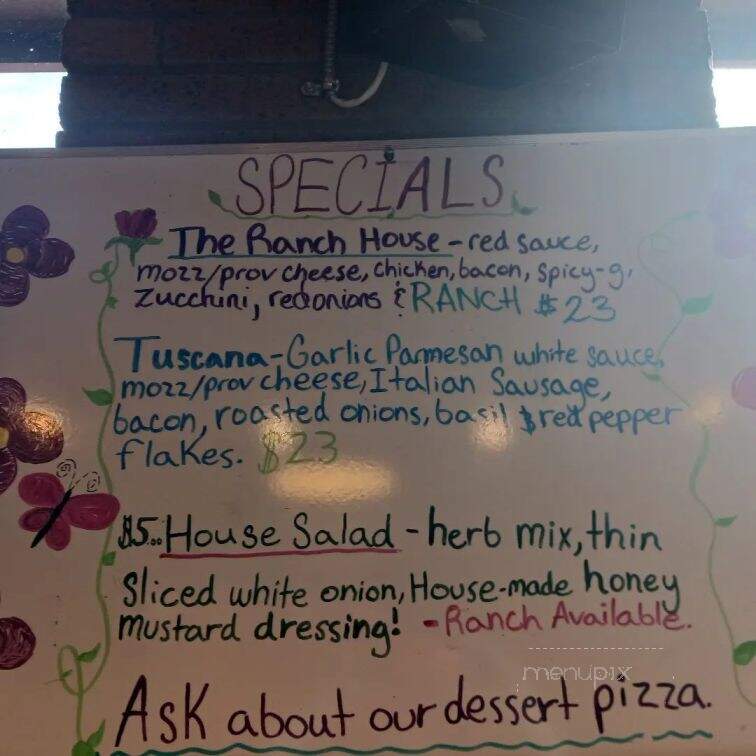 SPECIALS
The Ranch House - red sauce,
mozz/prov cheese, chicken, bacon, spicy-g,
zucchini, red onions & RANCH $23
Tuscana - Garlic Parmesan white sauce,
mozz/prov cheese, Italian Sausage,
bacon, roasted onions, basil & red pepper
flakes. $23
$5.. House Salad - herb mix, thin
Sliced white onion, House-made honey
mustard dressing! - Ranch Available.
menupix
Ask about our dessert pizza.